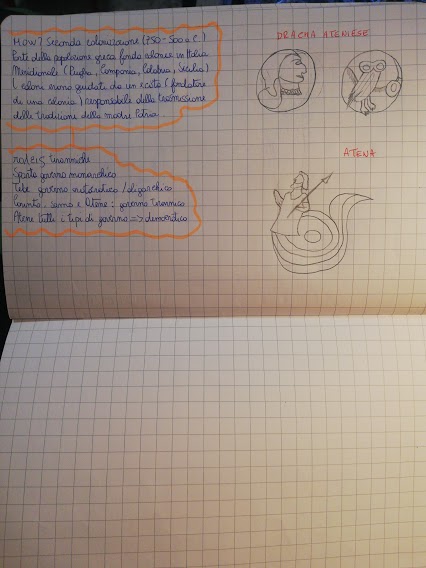 HOW? Seconda colonizzazione (750-500 a.C.)
Parte della popolazione greca fonda colonie in Italia
Meridionale (Puglia, Campania, Calabria, Sicilia)
I coloni erano guidati da un ecista (fondatore
di una colonia) responsabile della trasmissione
delle tradizione della madre Patria.
DRACMA ATENIESE
πόλεις tirannidi
Sparta governo monarchico
Tebe governo aristocratico / oligarchico
Corinto, Samo e Atene: governo Tirannico
Atene tutti i tipi di governo => democratico
ATENA